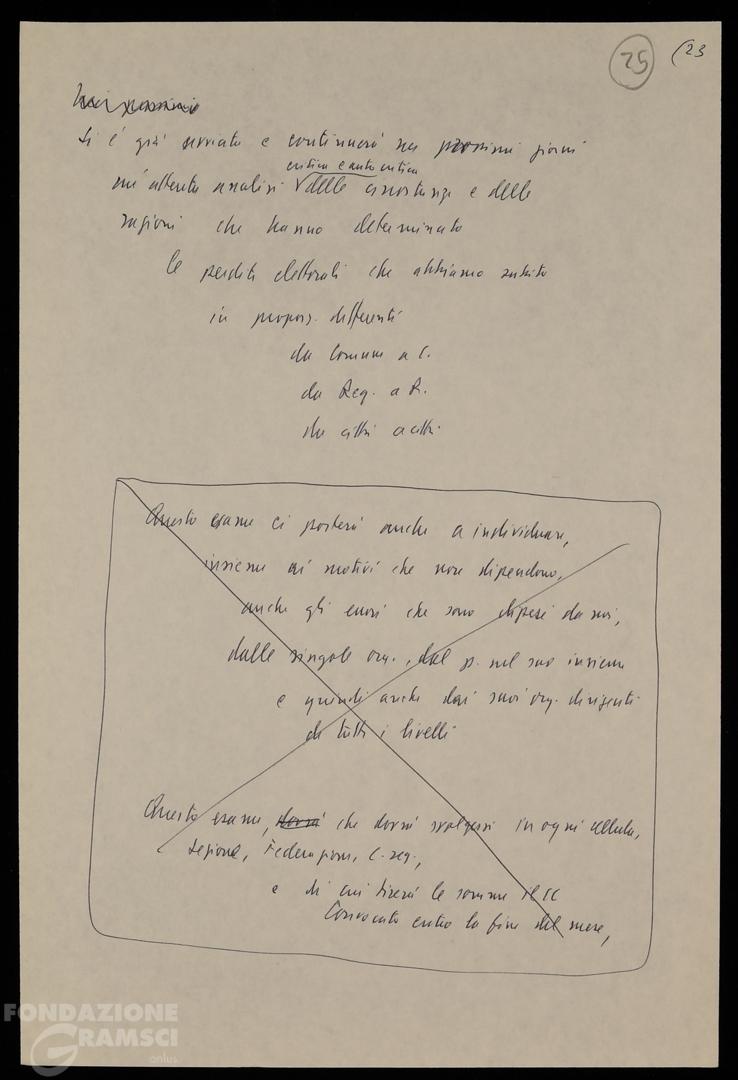 25
(23
Si è già avviata e continuerà nei prossimi giorni
critica e autocritica
un'attenta analisi delle circostanze e delle
ragioni che hanno determinato
le perdite elettorali che abbiamo subito
in propors. differenti
da Comune a C.
da Reg. a R.
da città a città.
Questo esame ci porterà anche a individuare,
insieme ai motivi che non dipendono,
anche gli errori che sono dipesi da noi,
dalle singole org., dal p. nel suo insieme
e quindi anche dai suoi org. dirigenti
di tutti i livelli
Questo esame, dovrà che dovrà svolgersi in ogni cellula,
sezione, Federazione, C. reg.,
e di cui tirerà le somme il CC
Convocato entro la fine del mese,
FONDAZIONE
GRAMSCI
onlus